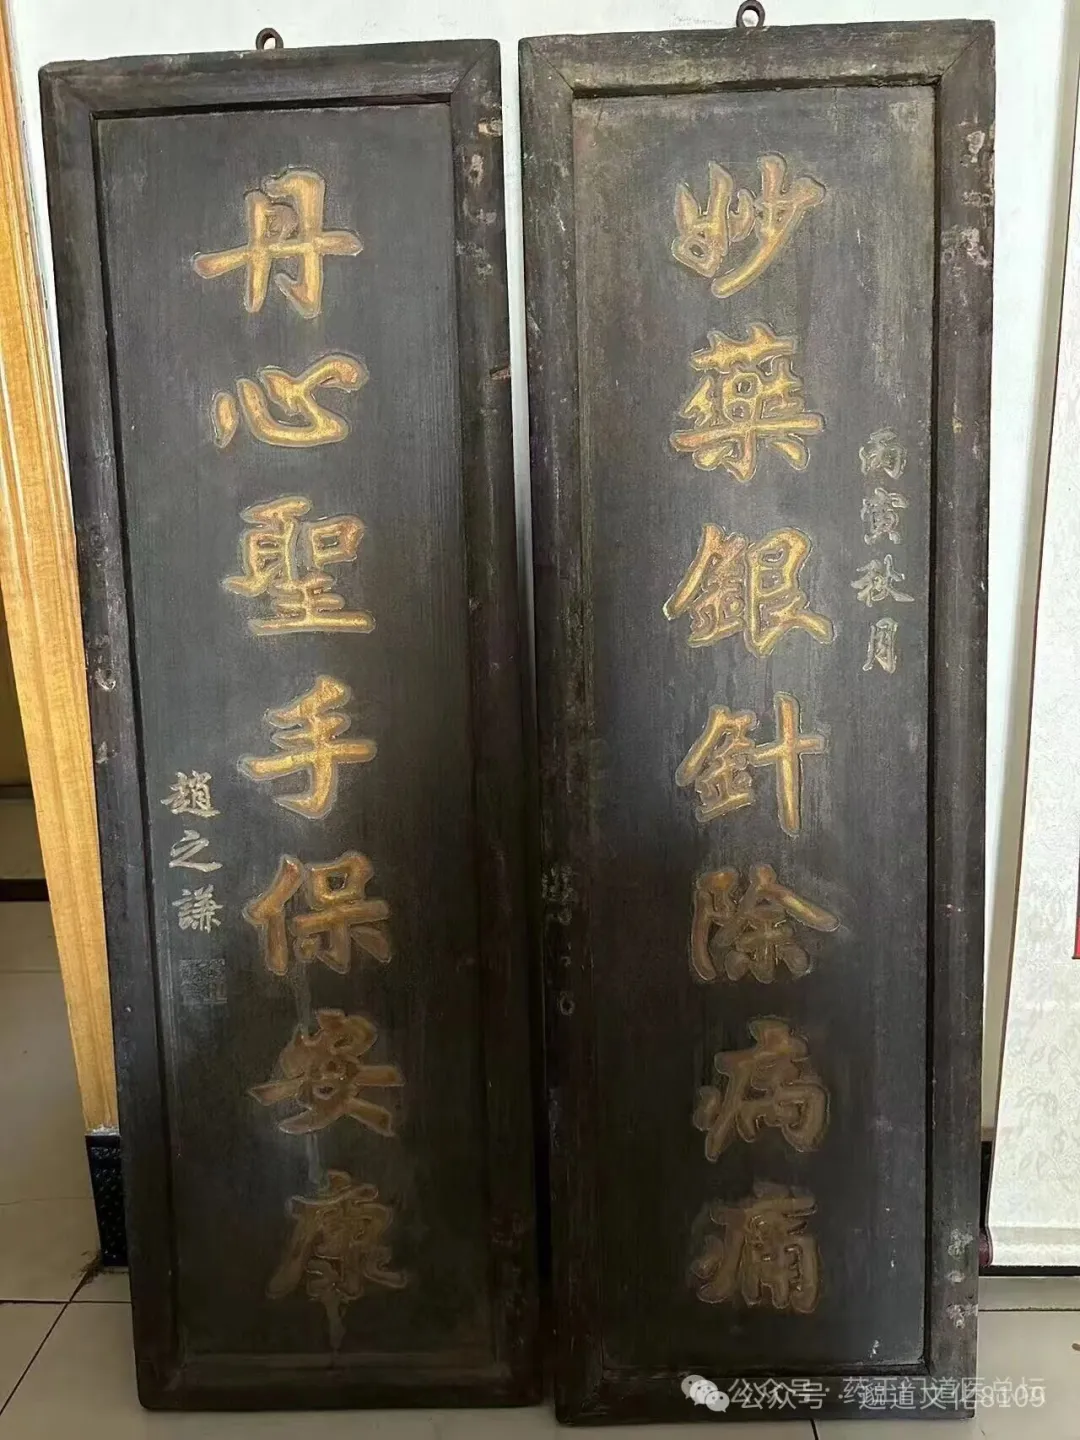 妙藥銀針除病痛
丙寅秋月
丹心聖手保安康
趙之謙
公众号·药王门道医总坛
公众号·邈道文化8109